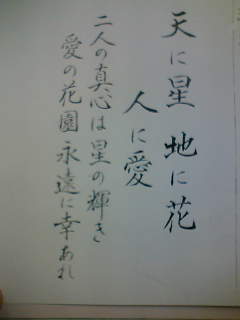 天に星 地に花
人に愛
二人の真心は星の輝き
愛の花園永遠に幸あれ